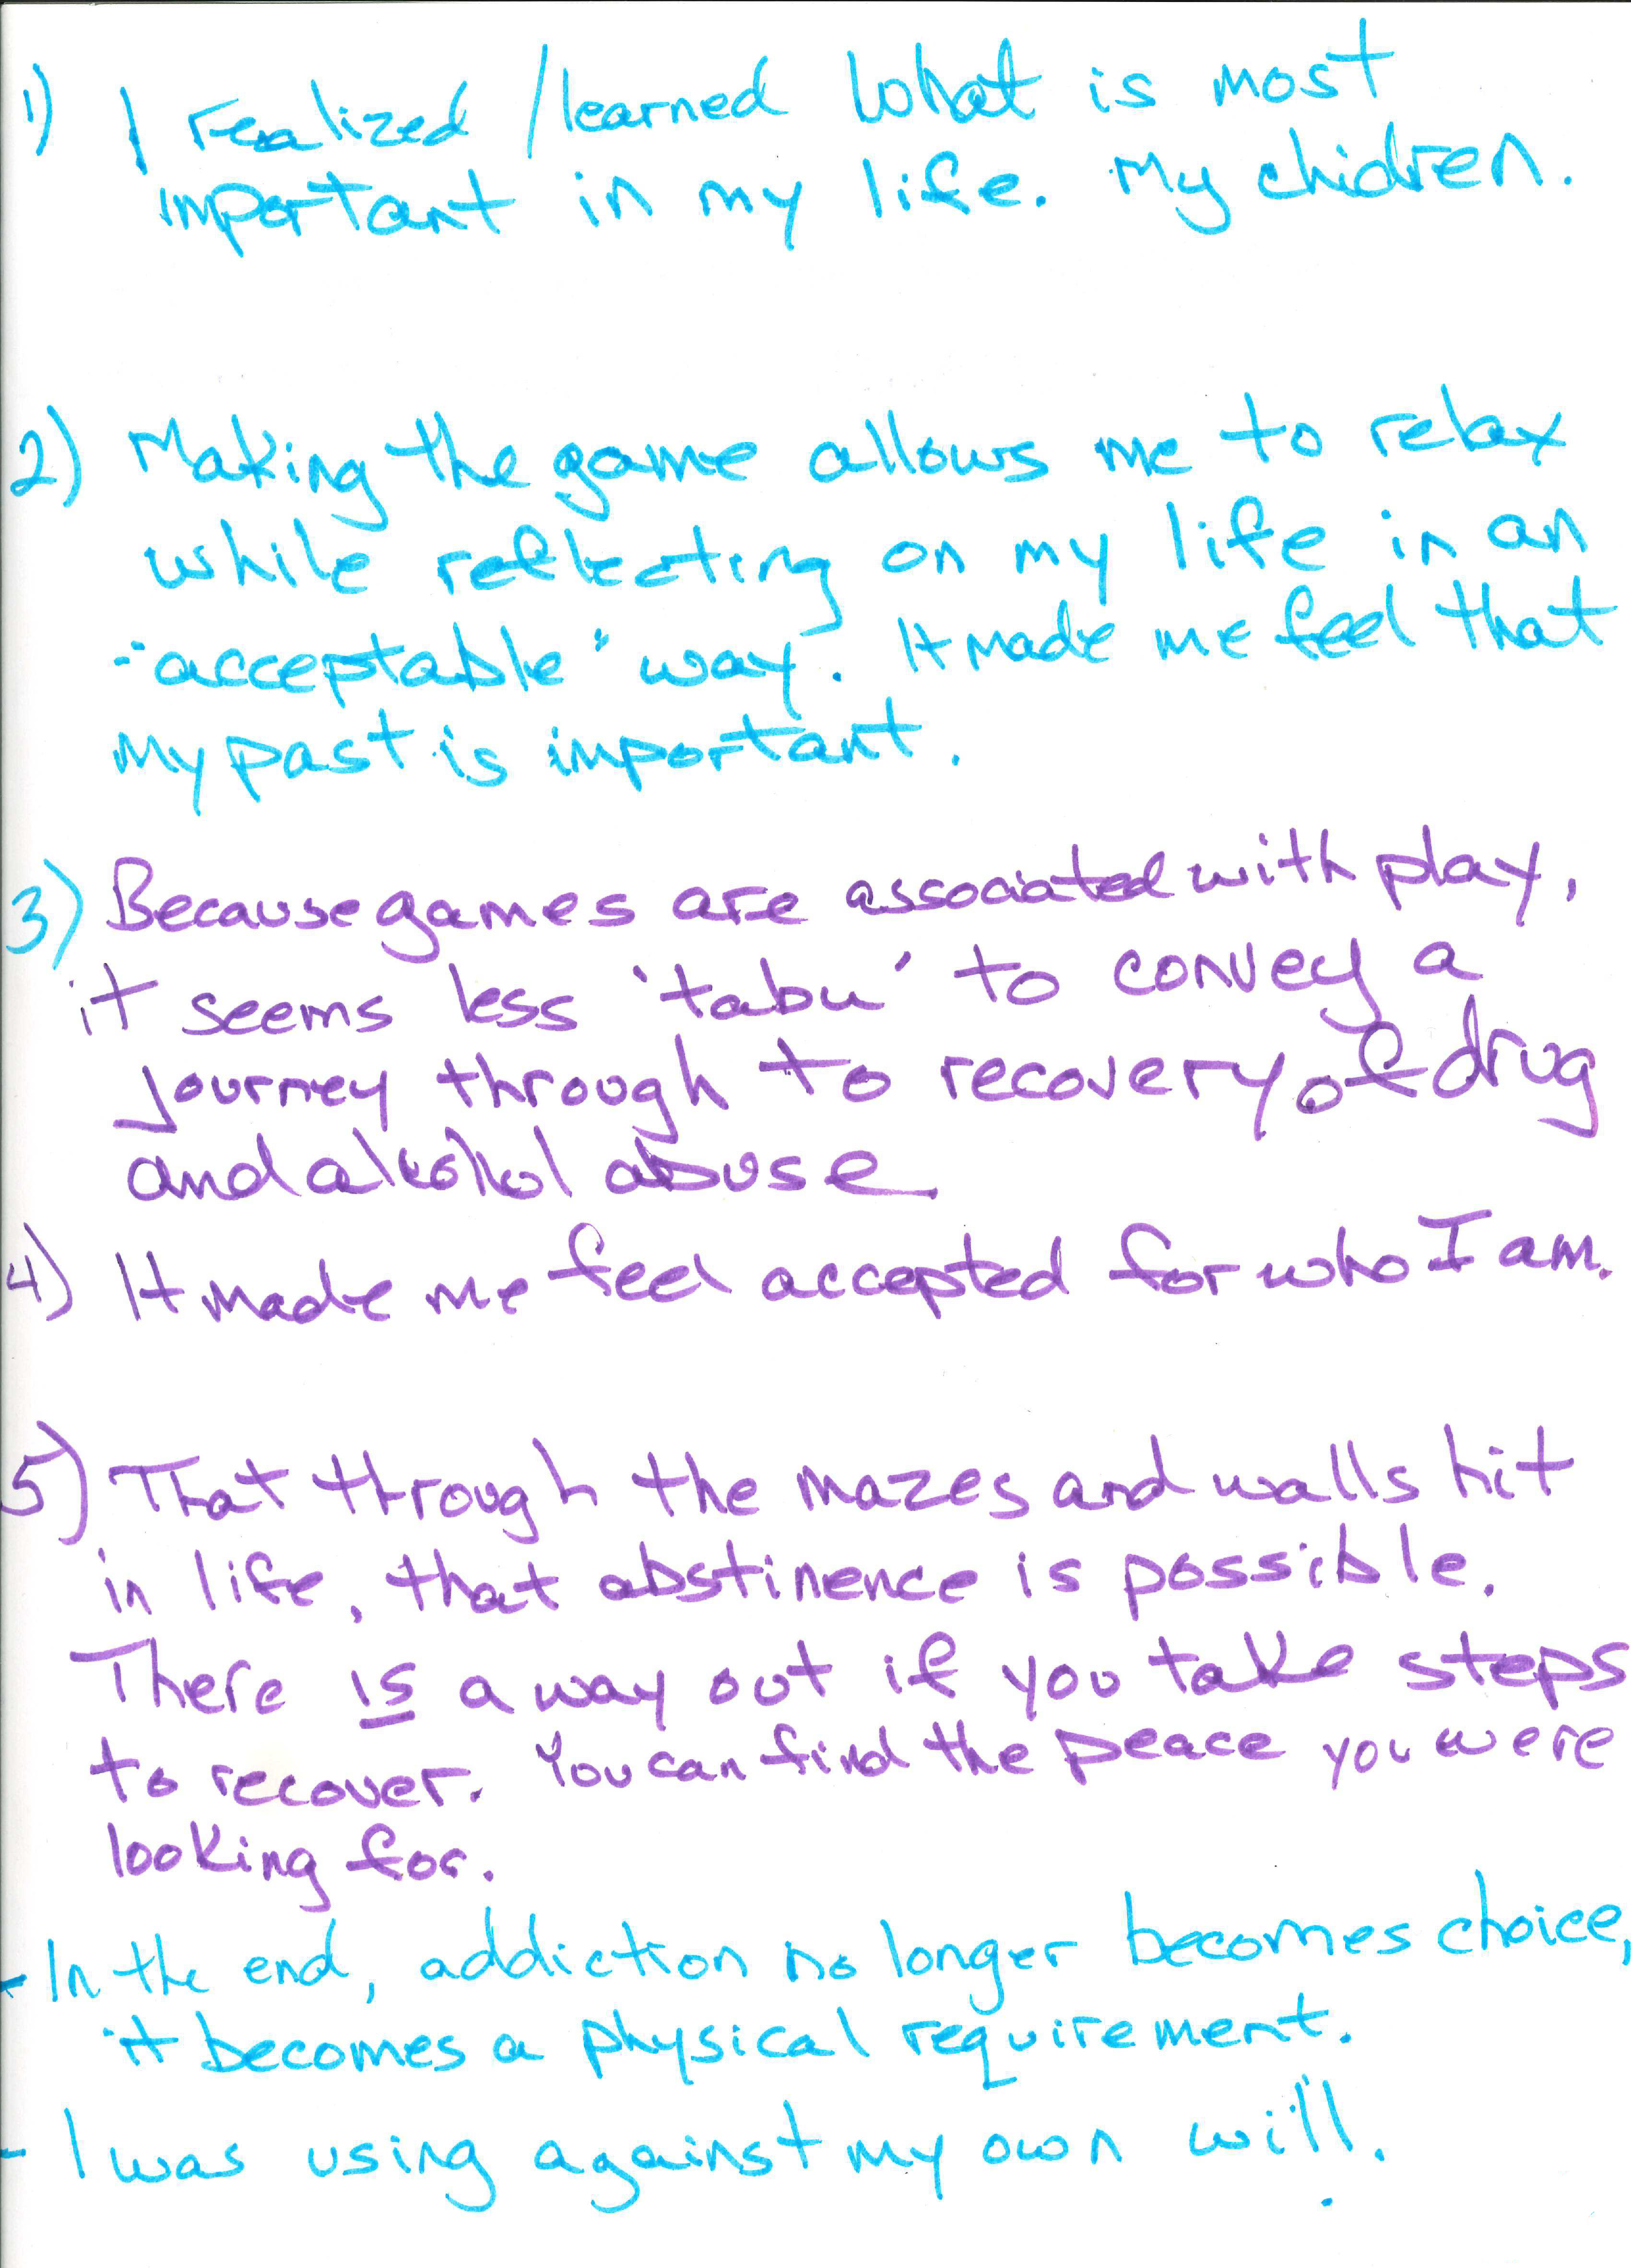 1) I realized /learned what is most
important in my life. My chidren.
2) Making the game allows me to relax
while reflecting on my life in an
"acceptable" way. It made me feel that
my past is important.
3) Because games are associated with play,
it seems less 'tabu' to convey a
journey through to recovery of drug
and alcohol abuse
4) It made me feel accepted for who I am.
5) That through the mazes and walls hit
in life, that abstinence is possible.
There is a way out if you take steps
to recover. You can find the peace you were
looking for.
- In the end, addiction no longer becomes choice,
it becomes a physical requirement.
- I was using against my own will.